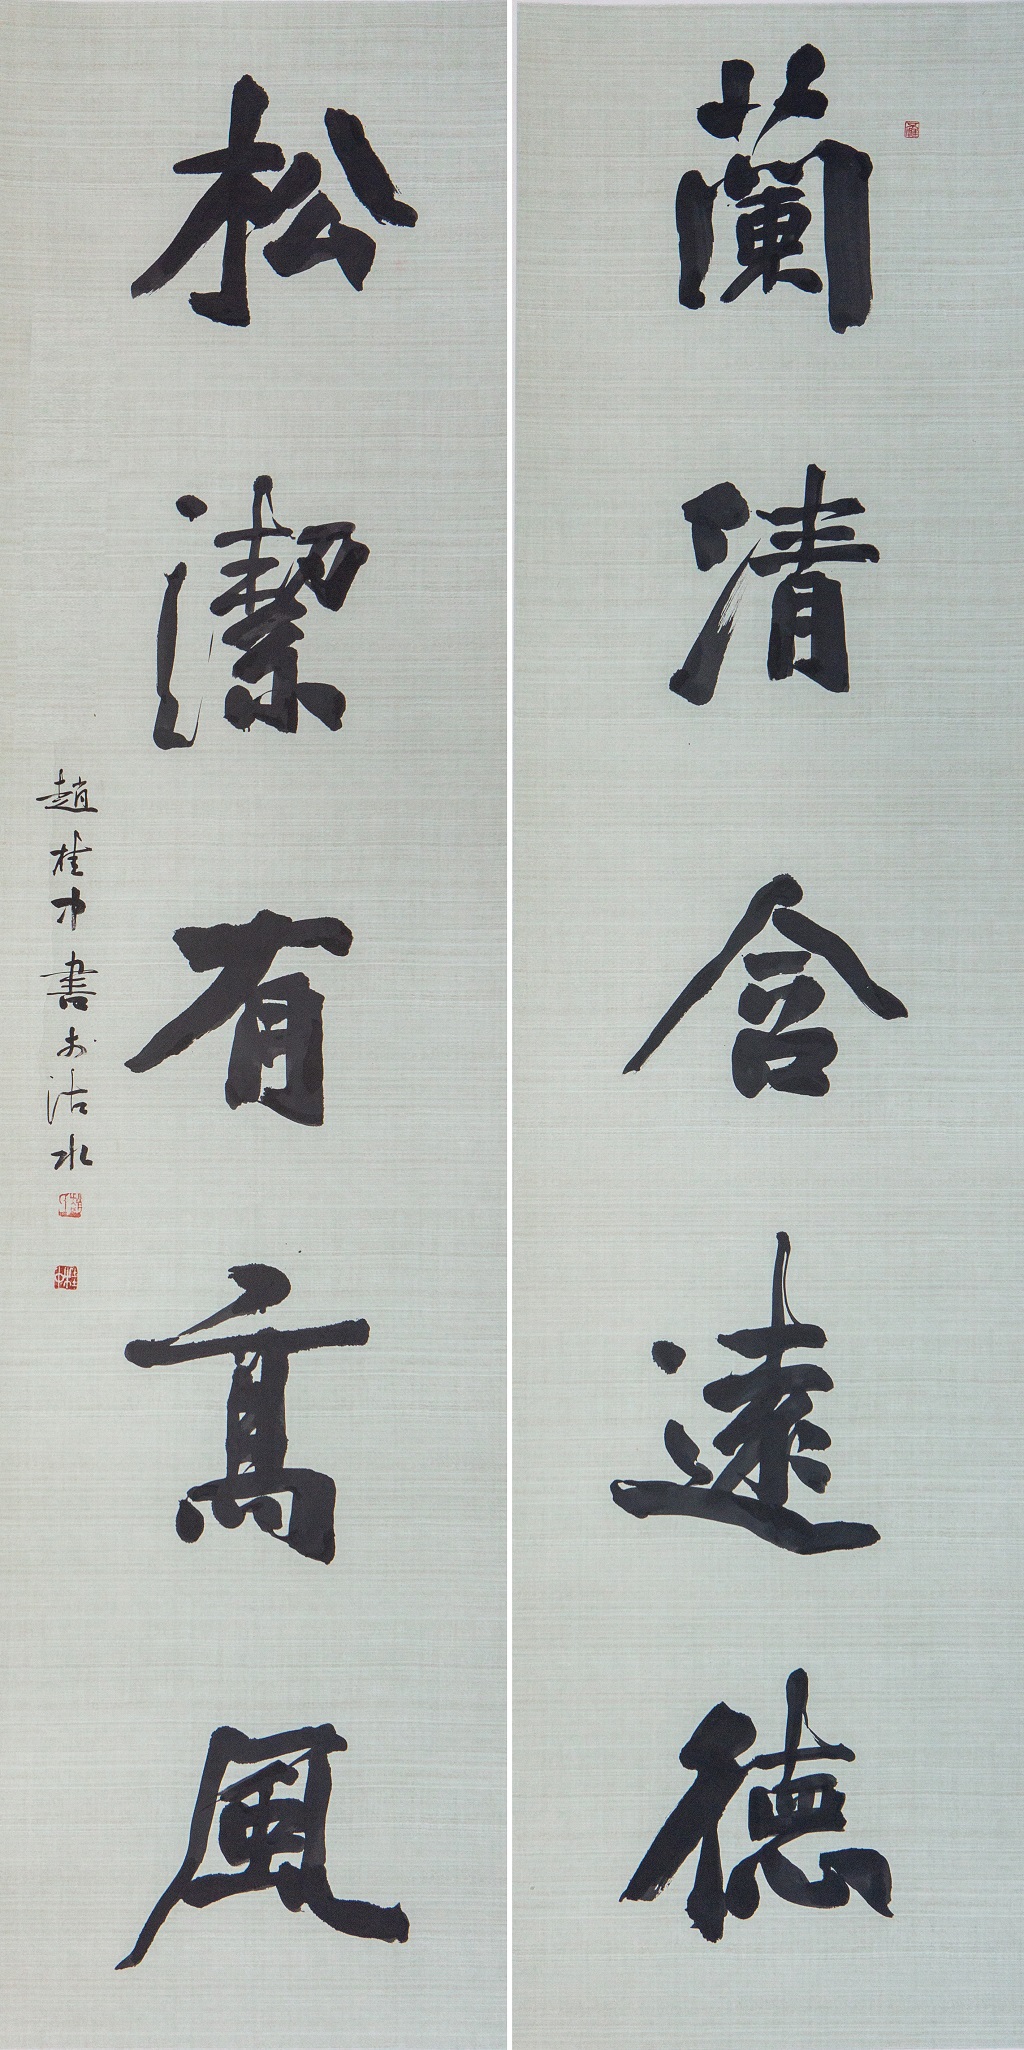 蘭清含遠德
松潔有高風
趙桂中書於沽水